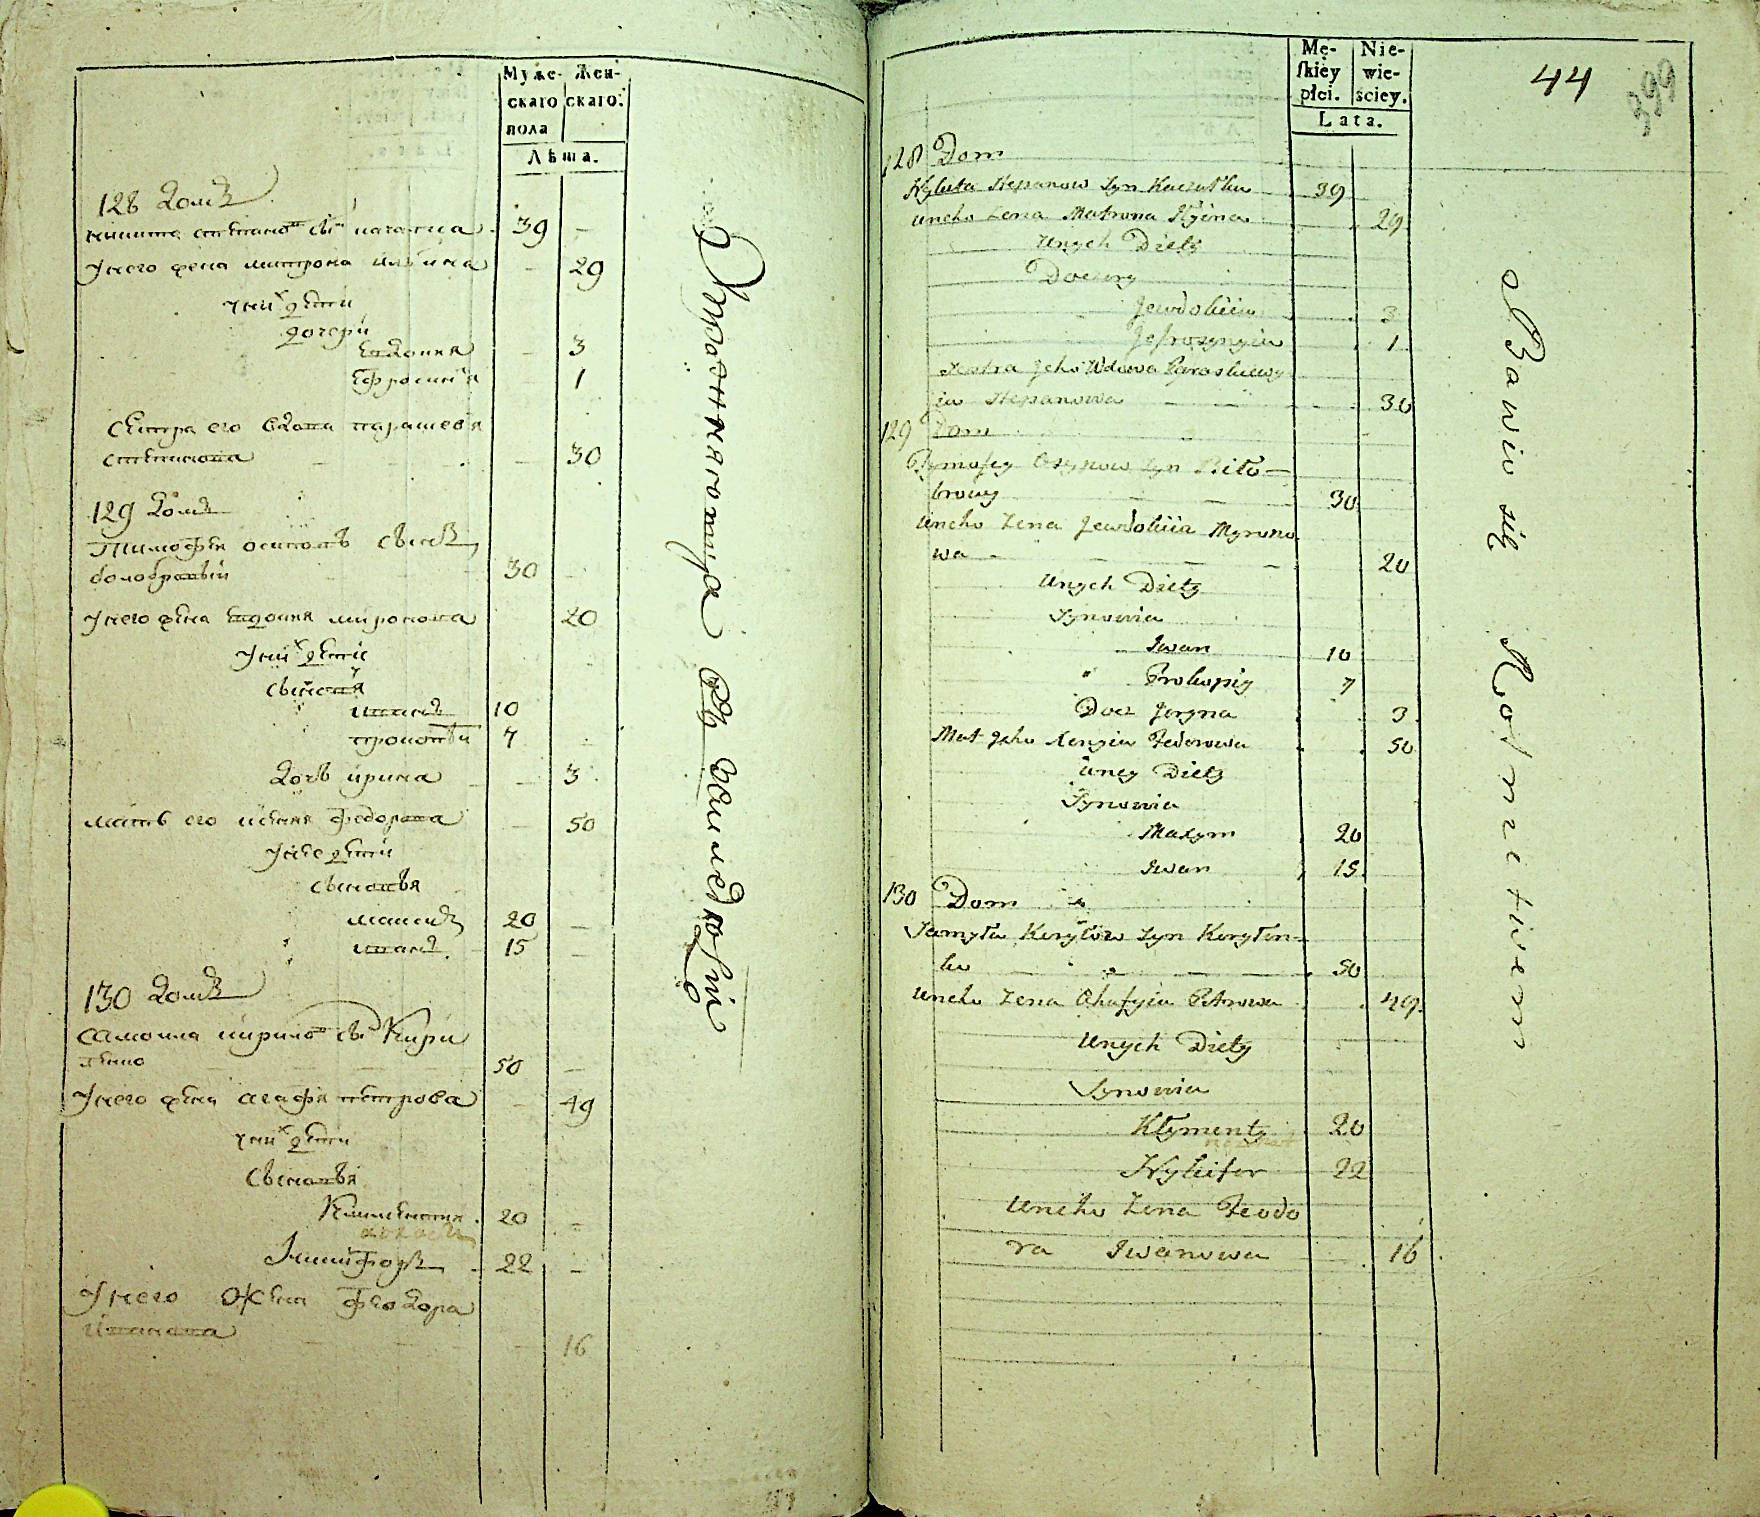 Муже-
скаго
пола
Жен-
скаго.
Лѣта.
128 домъ
Никита степано сы качатка 39
У него жена матрона илѣина 29
У них дети
дочери
Евдокия 3
Ефросиния 1
Сестра его вдова парасков'я
степанова 30
129 домъ
Тимофеи осиповъ сынъ
болобровый 30
У него жена Евдокия миронова 20
У них дети
сынов'я
иванъ 10
прокопѣи 7
дочь ирина 3
мать его ксения федорова 50
У нее дети
сынов'я
максимъ 20
иванъ 15
130 домъ
Самоила кирило сы Кири
ленко 50
У него жена агафия петрова 49
У них дети
сынов'я
Климентия 20
Никифоръ 22
У него жена феодора
иванова 16
Упражняются въ земледелии
Mę-
skiey
płci.
Nie-
wie-
sciey.
Lata.
44
399
128 Dom
Nykita Stepanow Syn Kaczutka 39
uneho Zena Matrona Ilyina 29
Unych Diety
Doczery
Jewdokiia 3
Jefrosynyia 1
Sestra Jeho Wdowa Paraskiewy
ia Stepanowa 30
129 Dom
Tymofey Osypow Syn Biło-
browy 30
Uneho Zena Jewdokiia Myrono
wa 20
Unych Diety
Synowia
Iwan 10
Prokopiy 7
Docz Jeryna 3
Mat Jeho Xenyia Fedorowa 50
Uney Diety
Synowia
Maxym 20
Iwan 15
130 Dom
Samyła Kiryłow Syn Kiryłen-
ko 50
Uneho Zena Ohafyia Petrowa 49
Unych Diety
Synowia
Kłymenty 20
Nykifor 22
Uneho Zena Feodo
ra Iwanowa 16
Bawio się Rolnictwem